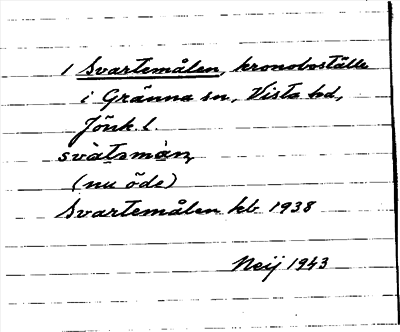 1 Svartemålen, kronoboställe
i Gränna sn, Vista hd,
Jönk. l.
svàtəmàn,
(nu öde)
Svartemålen kb 1938
Neij 1943